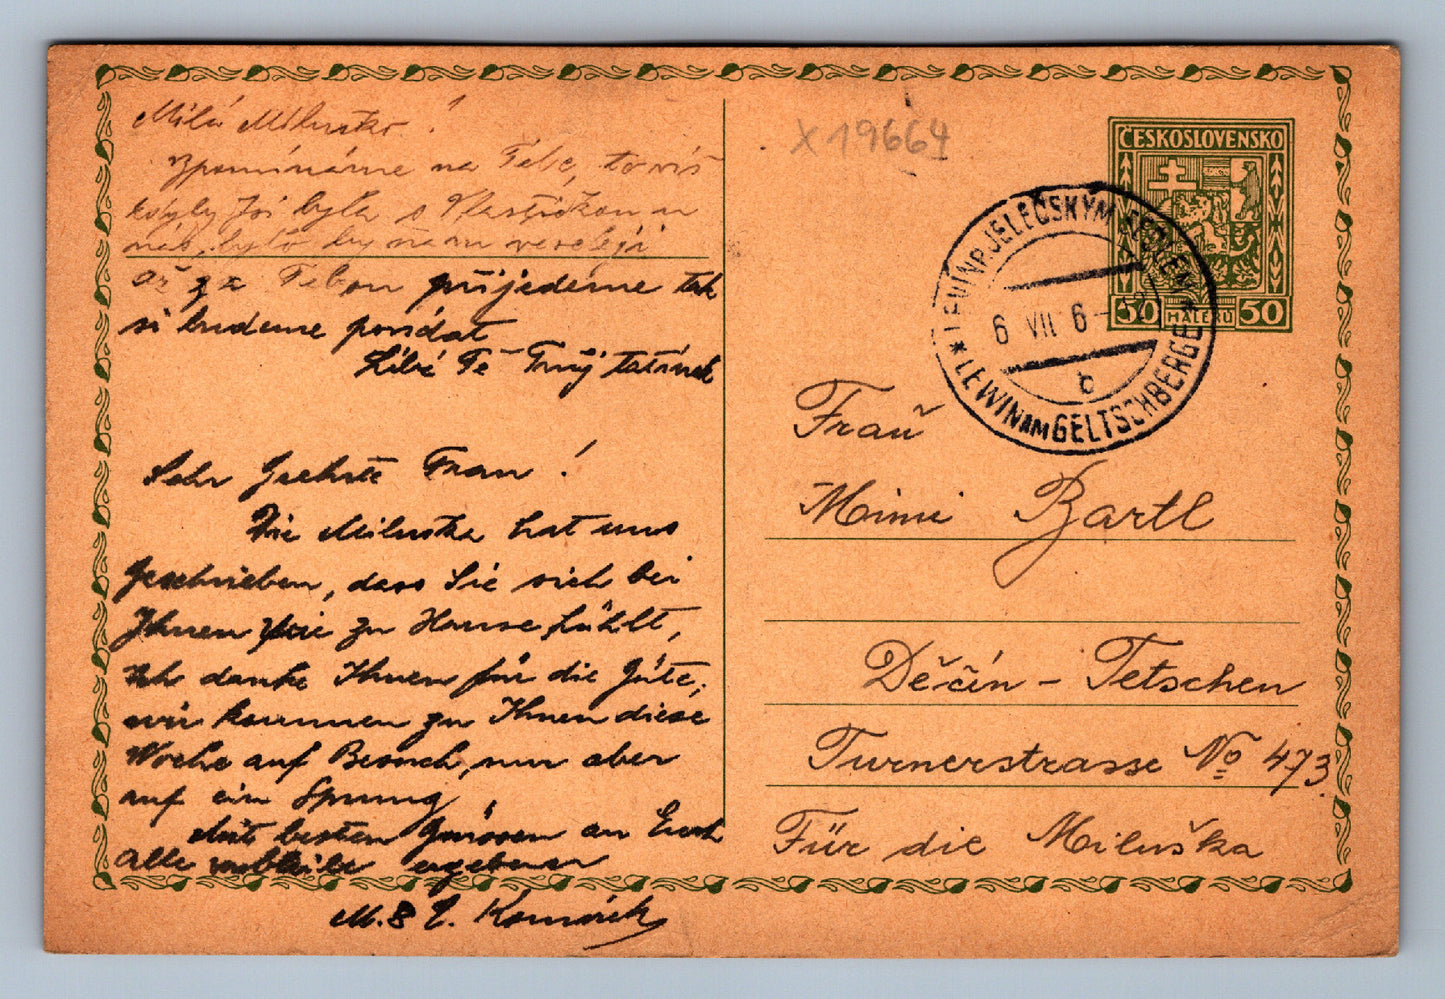 Milá Miluško!
vzpomínáme na Tebe, to víš
kdyby jsi byla s Vlastičkou u
nás, bylo by nám veseleji
až za Tebou přijedeme tak
si budeme povídat
Líbá Tě Tvůj tatínek
Sehr Geehrte Frau!
Die Miluska hat uns
geschrieben, dass Sie sich bei
Ihnen wie zu Hause fühlt,
ich danke Ihnen für die Güte,
wir kommen zu Ihnen diese
Woche auf Besuch, nur aber
auf ein Sprung
Mit besten Grüssen an Euch
Alle verbleibe ergebener
M. & E. Komárek
X 19664
ČESKOSLOVENSKO
50 HALÉŘŮ 50
LEVÍN P. JELEČSKÝM SEDLEM
6 VII 6
b
*LEWIN AM GELTSCHBERGE*
Frau
Mimi Bartl
Děčín - Tetschen
Turnerstrasse No 473.
Für die Miluška